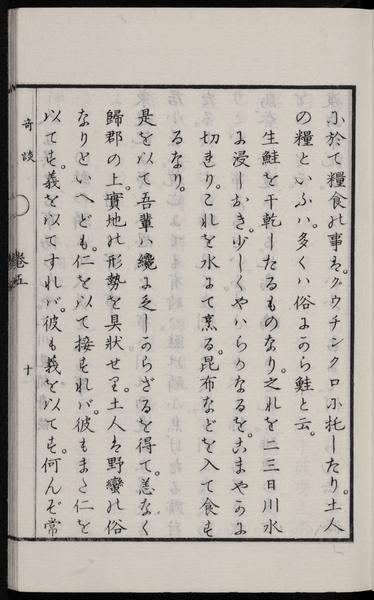 小於て糧食の事は。クウチンクロ小托したり。土人
の糧といふハ。多くハ俗にから鮭と云。
生鮭を干乾したるものなり。之れを二三日川水
に浸しおき。少しくやハらかなるを。こまやかに
切れり。これを水にて烹る。昆布などを入て食す
るなり。
是を以て吾輩ハ纔に乏しからざるを得て。恙なく
歸郡の上。實地の形勢を具狀せり。土人は野蠻の俗
なりといへども。仁を以て接すれバ。彼もまた仁を
以てす。義を以てすれバ。彼も義を以てす。何んぞ常
奇談
卷五
十